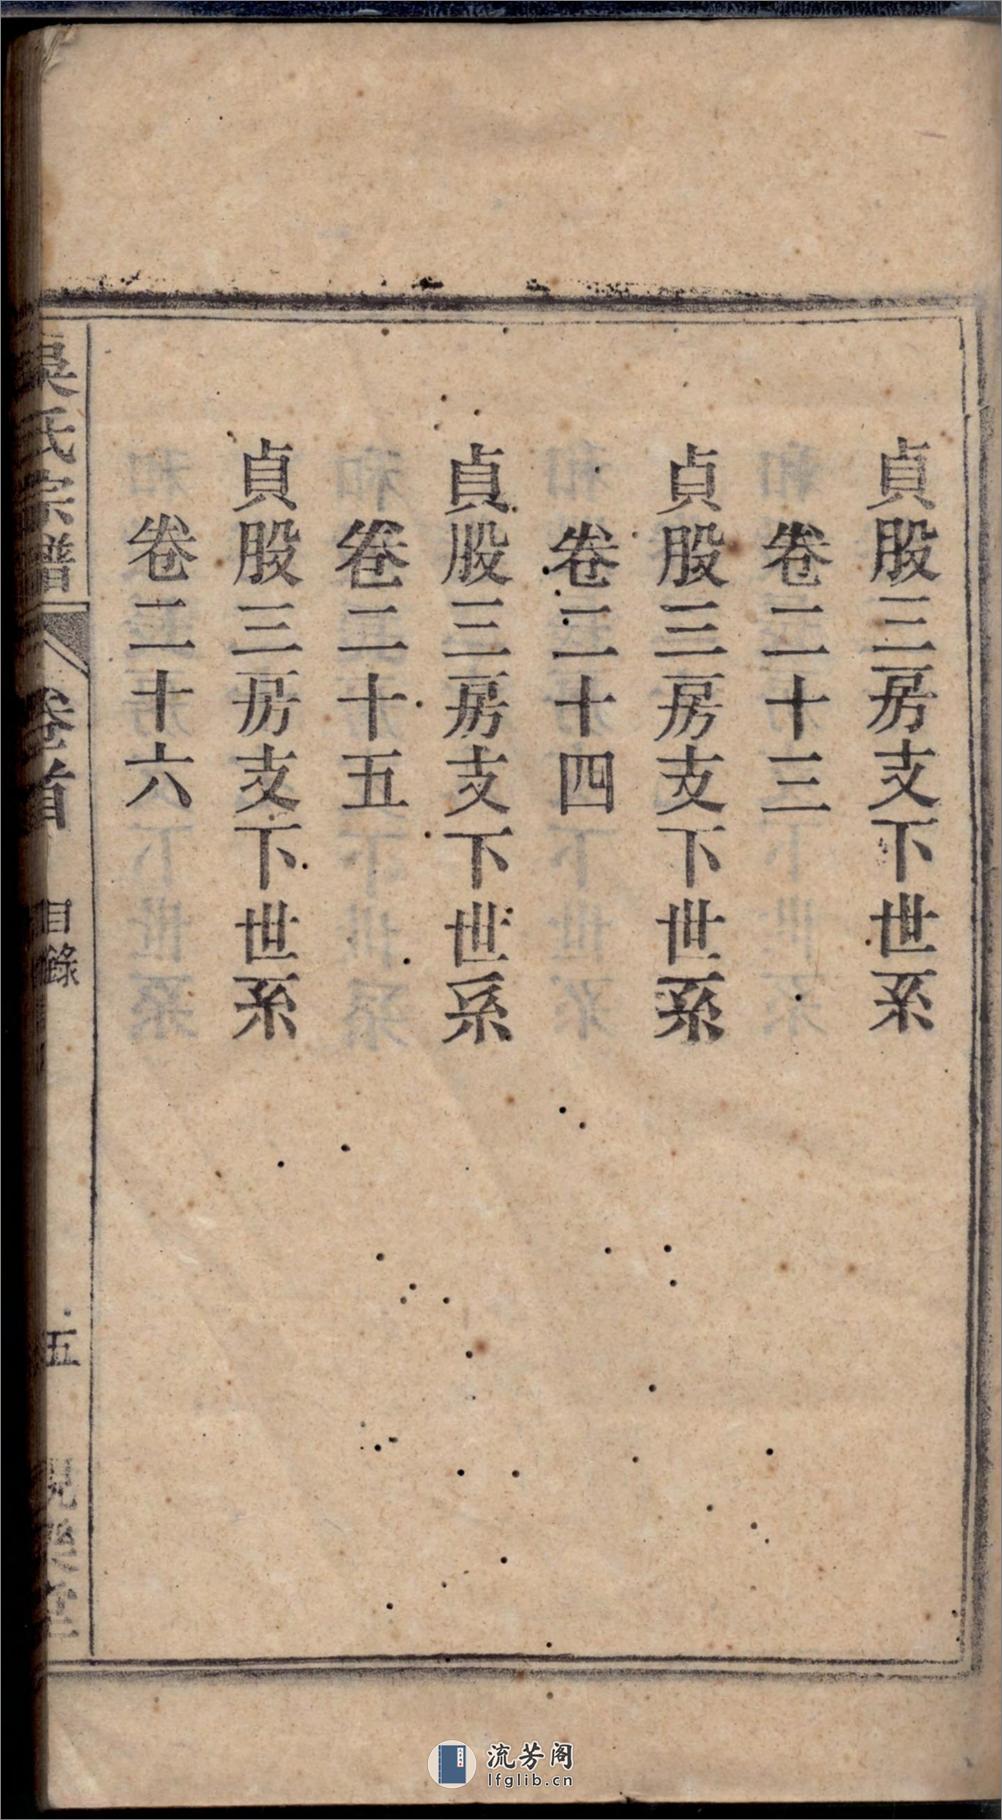 貞股三房支下世系
卷二十三
貞股三房支下世系
卷二十四
貞股三房支下世系
卷二十五
貞股三房支下世系
卷二十六
吳氏宗譜
卷首
目錄
五
流芳阁
lfglib.cn